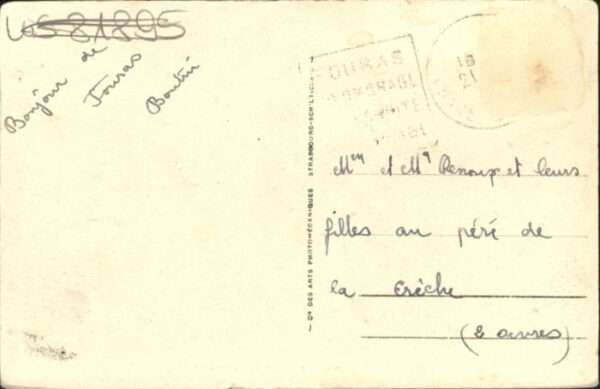 US 81895
Bonjour de
Fouras
Boutin
FOURAS
PLAGE
16
21
Cie DES ARTS PHOTOMÉCANIQUES STRASBOURG-SCHILTIGHEIM
Mme et Mr Renoux et leurs
filles au péré de
la Crèche
(2 sèvres)